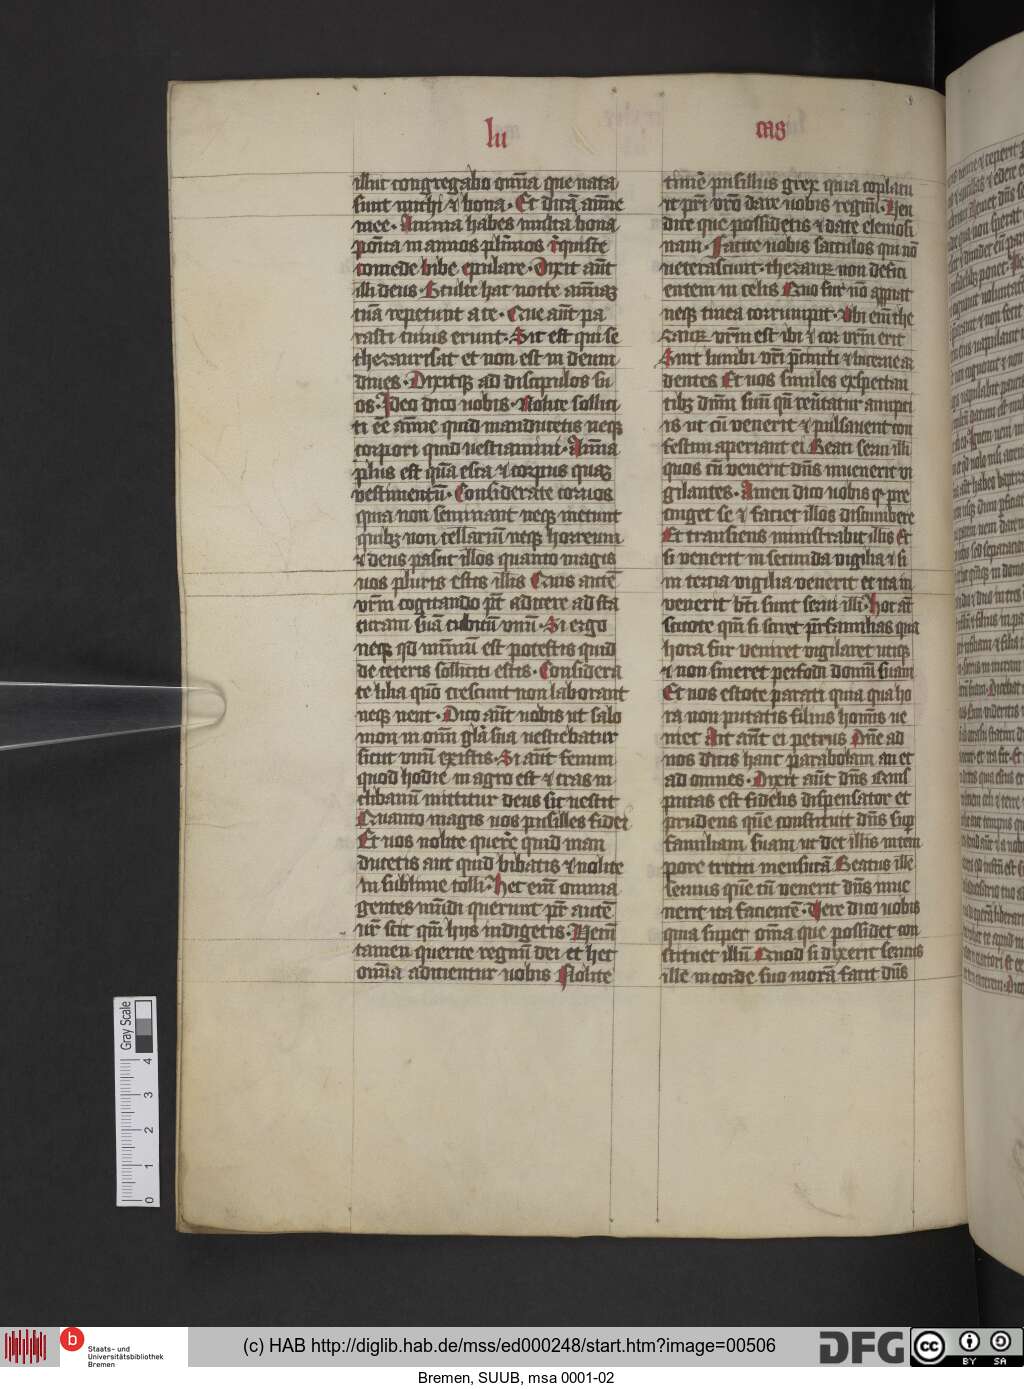 lu
cas
illuc congregabo om̄ia que nata
sunt michi ⁊ bona. Et dicā aīme
mee. Anima habes multa bona
poīta in annos pl̄imos r̄quiesce
comede bibe epulare. Dixit aūt
illi deus. Stulte hac nocte animā
tuā repetunt a te. Que aūt pa
rasti cuius erunt. Sic est qui se
thezaurisat et non est in deum
diues. Dixitqz ad discipulos su
os. Ideo dico uobis. Nolite sollici
ti eē aīme quid manducetis neqz
corpori quid uestiamini. Anīma
plus est quā esca ⁊ corpus quaz
vestimentū. Considerate coruos
quia non seminant neqz metunt
quibz non est cellariū neqz horreum
⁊ deus pascit illos quanto magis
uos pluris estis illis Quis autē
vr̄m cogitando pt̄ adicere ad sta
turam suā cubitū vnū. Si ergo
neqz qd minimū est potestis quid
de ceteris solliciti estis. Considera
te lilia quō crescunt non laborant
neqz nent. Dico aūt uobis ut salo
mon in om̄i gl̄a sua uestiebatur
sicut vnū ex istis. Si aūt fenum
quod hodie in agro est ⁊ cras in
clibanū mittitur deus sic uestit
Quanto magis uos pusilles fidei
Et uos nolite querē quid man
ducetis aut quid bibatis ⁊ nolite
in sublime tolli. hec enī omnia
gentes mūdi querunt pr̄ autē
vr̄ scit qm̄ hijs indigetis. Verū
tamen querite regnū dei et hec
om̄ia adicientur uobis Nolite
timē pusillus grex quia cōplacu
it pr̄i vr̄o dare uobis regnū. Ven
dite que possidetis ⁊ date elemosi
nam. Facite uobis sacculos qui nō
ueterascunt. thezaurz non defici
entem in celis Quo fur nō appiat
neqz tinea corrumpit. Ubi enī the
zaurz vr̄m est ibi ⁊ cor vr̄m erit
Sint lumbi vr̄i p̄cincti ⁊ lucerne ar
dentes Et uos similes exspectan
tibz dnm̄ suū qn̄ reūtatur a nupci
is ut cū venerit ⁊ pulsauerit con
festim aperiant ei Beati serui illi
quos cū venerit dn̄s inuenerit vi
gilantes. Amen dico uobis q' pre
cinget se ⁊ faciet illos discumbere
Et transiens ministrabit illis Et
si venerit in secunda vigilia ⁊ si
in tertia vigilia venerit et ita in
venerit bt̄i sunt serui illi. hoc aūt
scitote qm̄ si sciret pr̄familias qua
hora fur veniret vigilaret utiqz
⁊ non sineret perfodi domū suam
Et uos estote parati quia qua ho
ra non putatis filius homīs ue
niet Ait aūt ei petrus Dne ad
nos dicis hanc parabolam an et
ad omnes. Dixit aūt dn̄s Quis
putas est fidelis dispensator et
prudens quē constituit dn̄s sup
familiam suam ut det illis in tem
pore tritici mensurā Beatus ille
seruus quē cū venerit dn̄s inue
nerit ita facientē. Vere dico uobis
quia super om̄ia que possidet con
stituet illū Quod si dixerit seruus
ille in corde suo morā facit dn̄s
Gray Scale
4
3
2
1
0
b
Staats- und
Universitätsbibliothek
Bremen
(c) HAB http://diglib.hab.de/mss/ed000248/start.htm?image=00506
DFG
cc
BY SA
Bremen, SUUB, msa 0001-02